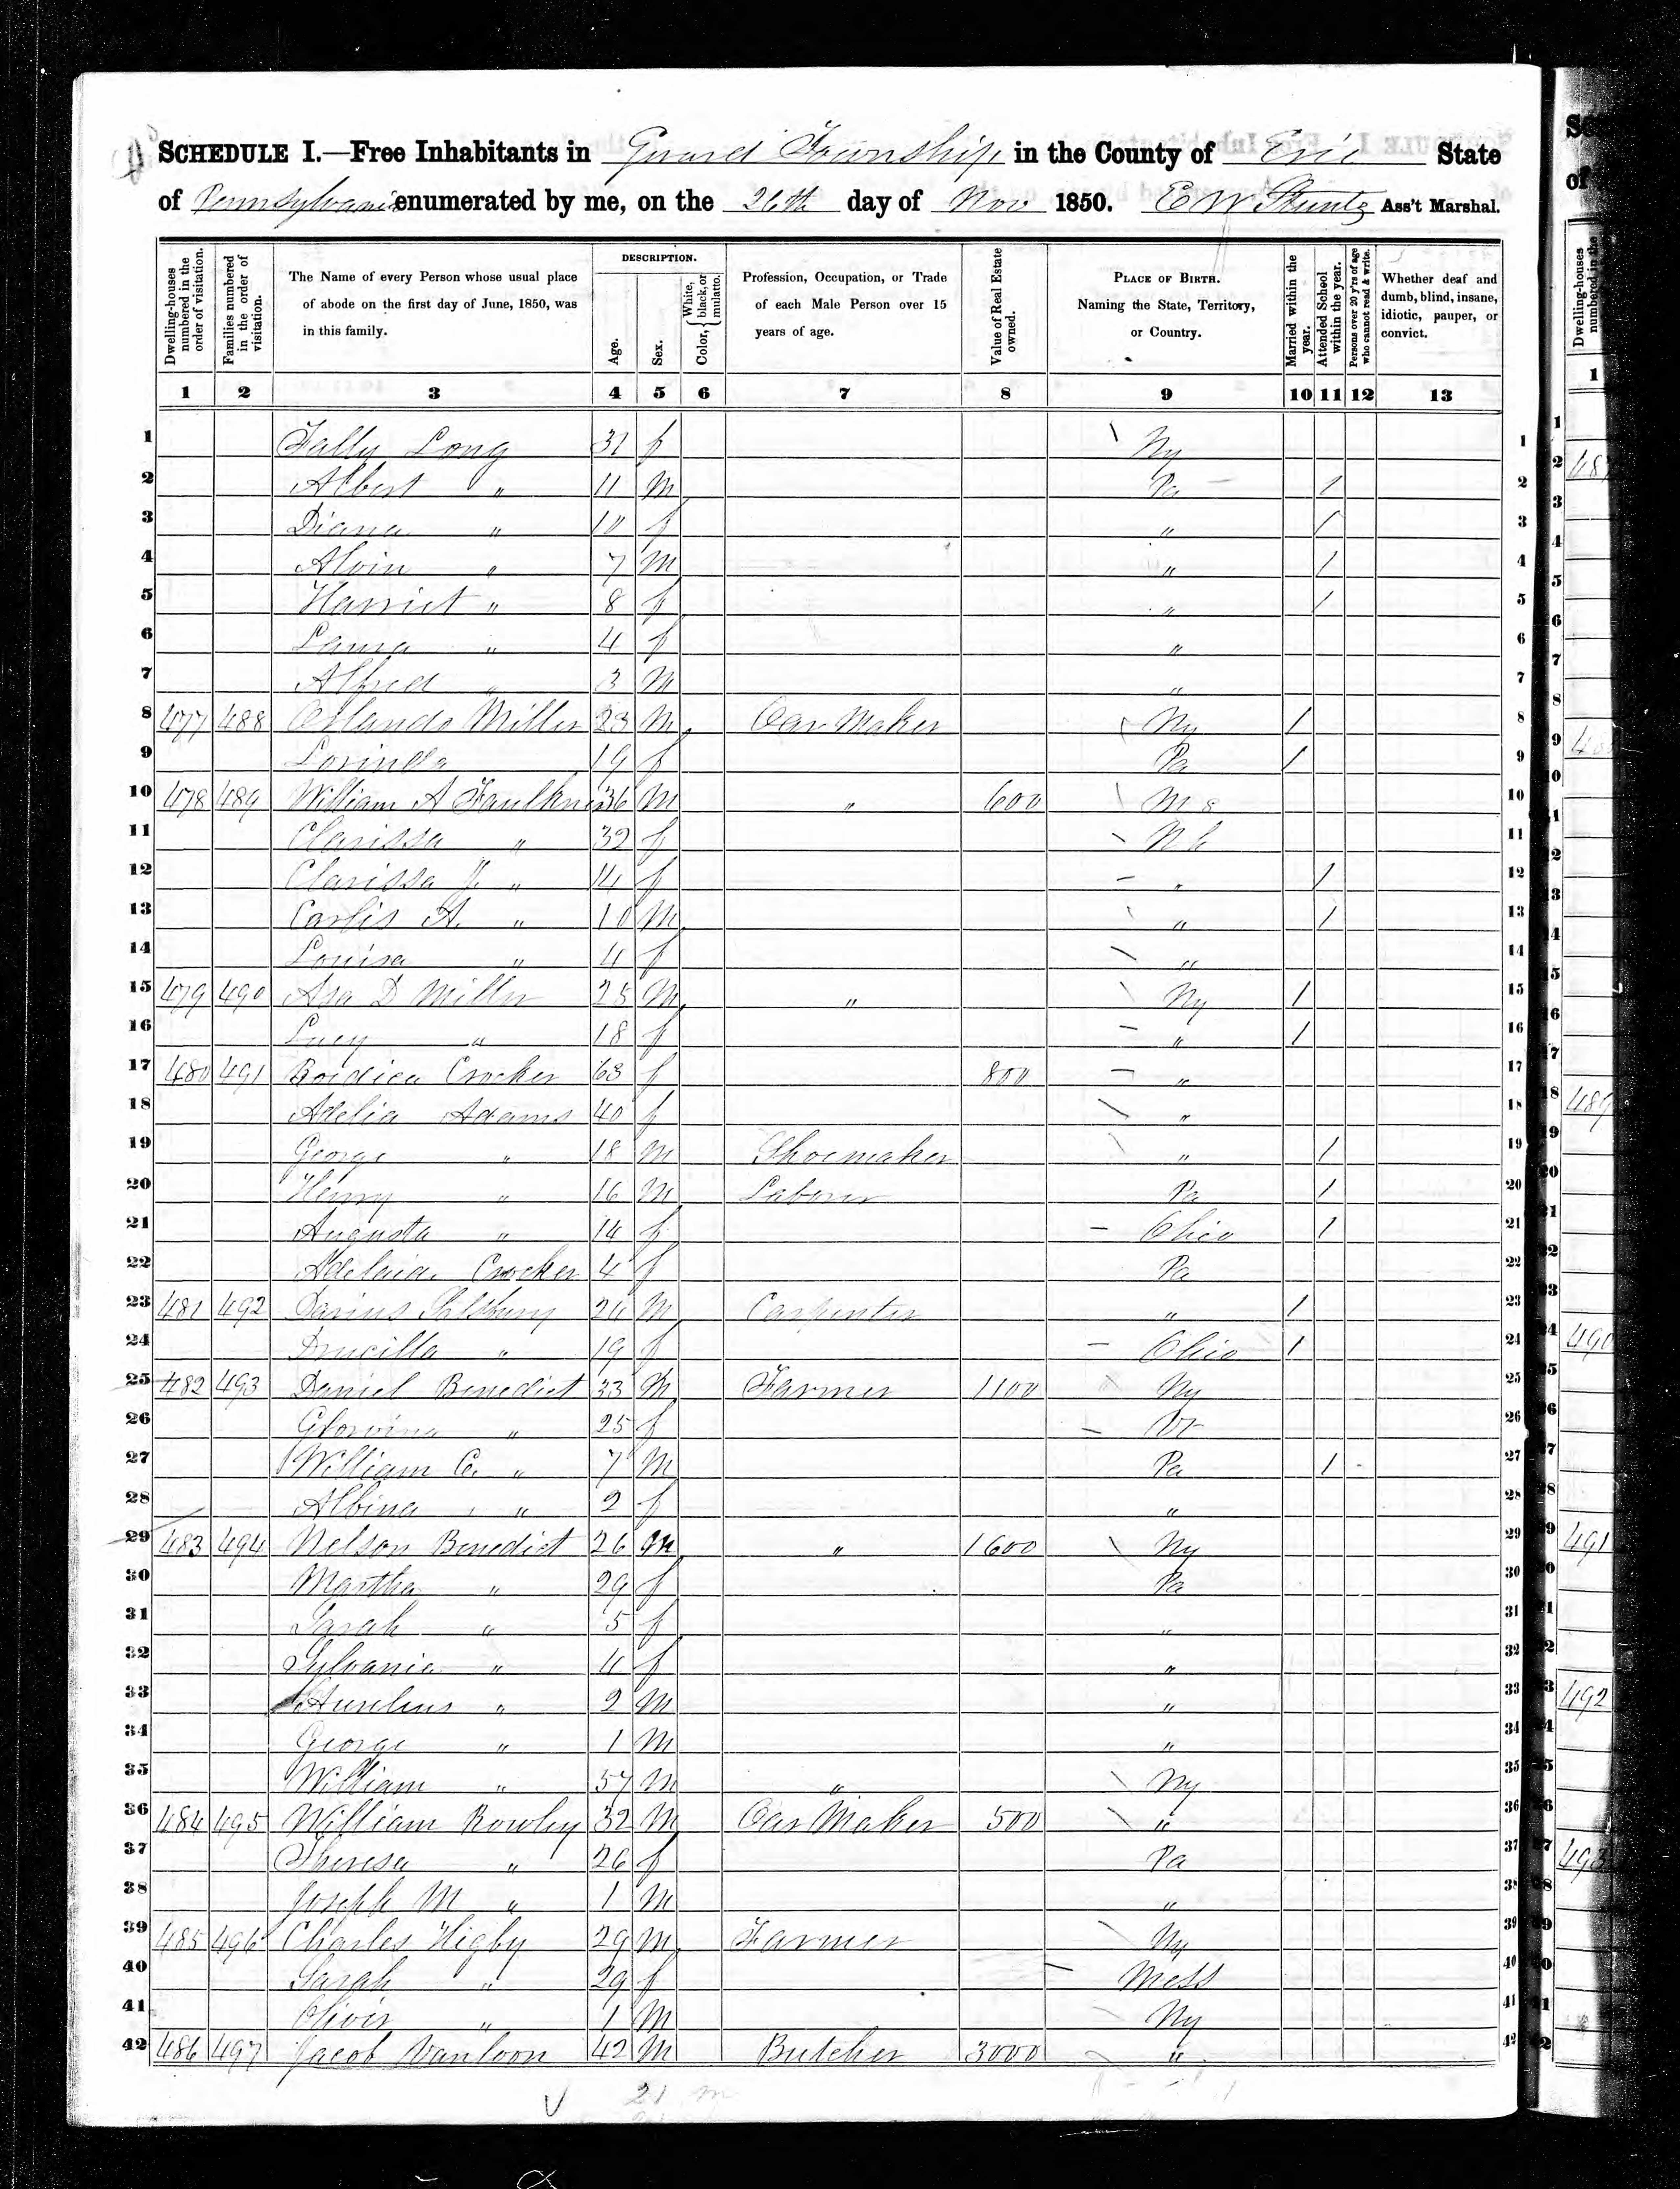 SCHEDULE I.—Free Inhabitants in Girard Township in the County of Erie State
of Pennsylvania enumerated by me, on the 26th day of Nov 1850. E W Stuntz Ass't Marshal.
Dwelling-houses numbered in the order of visitation. Families numbered in the order of visitation. The Name of every Person whose usual place of abode on the first day of June, 1850, was in this family. DESCRIPTION. Age. Sex. Color, { White, black, or mulatto. Profession, Occupation, or Trade of each Male Person over 15 years of age. Value of Real Estate owned. PLACE OF BIRTH. Naming the State, Territory, or Country. Married within the year. Attended School within the year. Persons over 20 y'rs of age who cannot read & write. Whether deaf and dumb, blind, insane, idiotic, pauper, or convict.
1 2 3 4 5 6 7 8 9 10 11 12 13
1 Long f Ny 1
2 Albert " 11 M Pa / 2
3 Diana " 10 f " / 3
4 Alvin " 7 M " / 4
5 Harriet " 8 f " / 5
6 Laura " 4 f " 6
7 Alfred " 3 M " 7
8 477 488 Orlando Miller 23 M Oar Maker Ny / 8
9 Lorinda 19 f Pa / 9
10 478 489 William A Faulkner 36 M " 600 10
11 Clarissa " 32 f N h 11
12 Clarissa J. " 14 f " / 12
13 A. " 10 M " / 13
14 Louisa " 4 f " 14
15 479 490 Asa D Miller 25 M " Ny / 15
16 Lucy " 18 f " / 16
17 480 491 Crocker 63 f 800 " 17
18 Adelia Adams 40 f " 18
19 George " 18 M Shoemaker " / 19
20 Henry " 16 M Laborer Pa / 20
21 Augusta " 14 f Ohio / 21
22 Adelaid Crocker 4 f Pa 22
23 481 492 Darius 26 M Carpenter " / 23
24 Drucilla " 19 f Ohio / 24
25 482 493 Daniel Benedict 33 M Farmer 1100 Ny 25
26 Glorvina " 25 f Vt 26
27 William C. " 7 M Pa / 27
28 Albina " 2 f " 28
29 483 494 Nelson Benedict 26 M " 1600 Ny 29
30 Martha " 29 f Pa 30
31 Sarah " 5 f " 31
32 Sylvania " 4 f " 32
33 Aurelius " 2 M " 33
34 George " 1 M " 34
35 William " 57 M " Ny 35
36 484 495 William Rowley 32 M Oar Maker 500 " 36
37 Theresa " 26 f Pa 37
38 Joseph M " 1 M " 38
39 485 496 Charles Higby 29 M Farmer Ny 39
40 Sarah " 29 f Mass 40
41 Oliver " 1 M Ny 41
42 486 497 Jacob Vanloon 42 M Butcher 3000 " 42
21 m